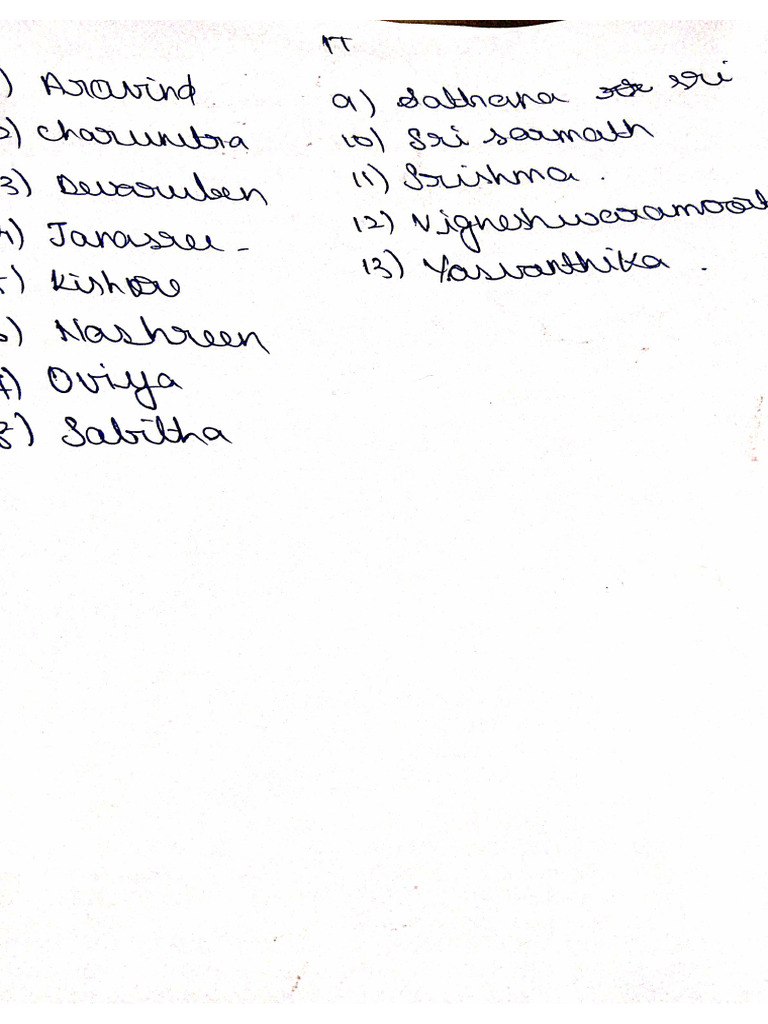 IT
1) Aravind
2) Charumitra
3) Devaruben
4) Janasree -
5) Kishore
6) Nashreen
7) Oviya
8) Sabitha
9) Sathana sri
10) Sri sarmath
11) Srishma .
12) Vigneshwaramoort
13) Yasvanthika .